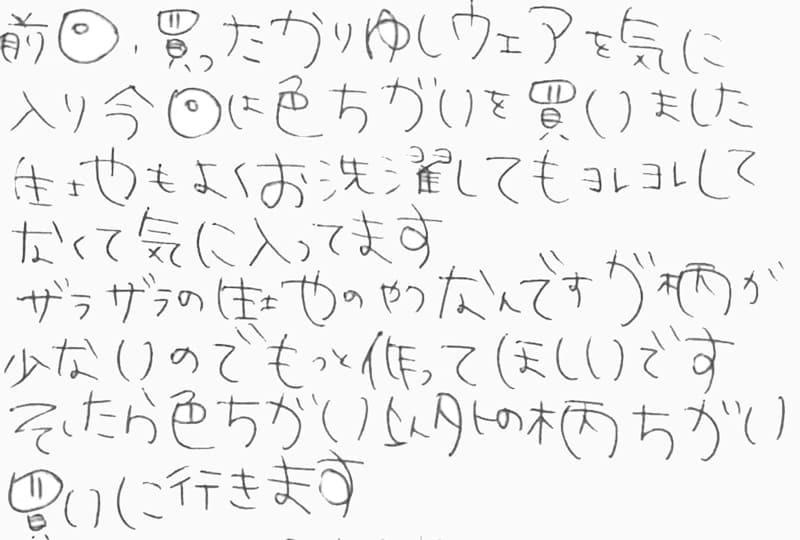 前回、買ったかりゆしウェアを気に
入り今回は色ちがいを買いました
生地もよくお洗濯してもヨレヨレして
なくて気に入ってます
ザラザラの生地のやつなんですが柄が
少ないのでもっと作ってほしいです
そしたら色ちがい以外の柄ちがい
買いに行きます